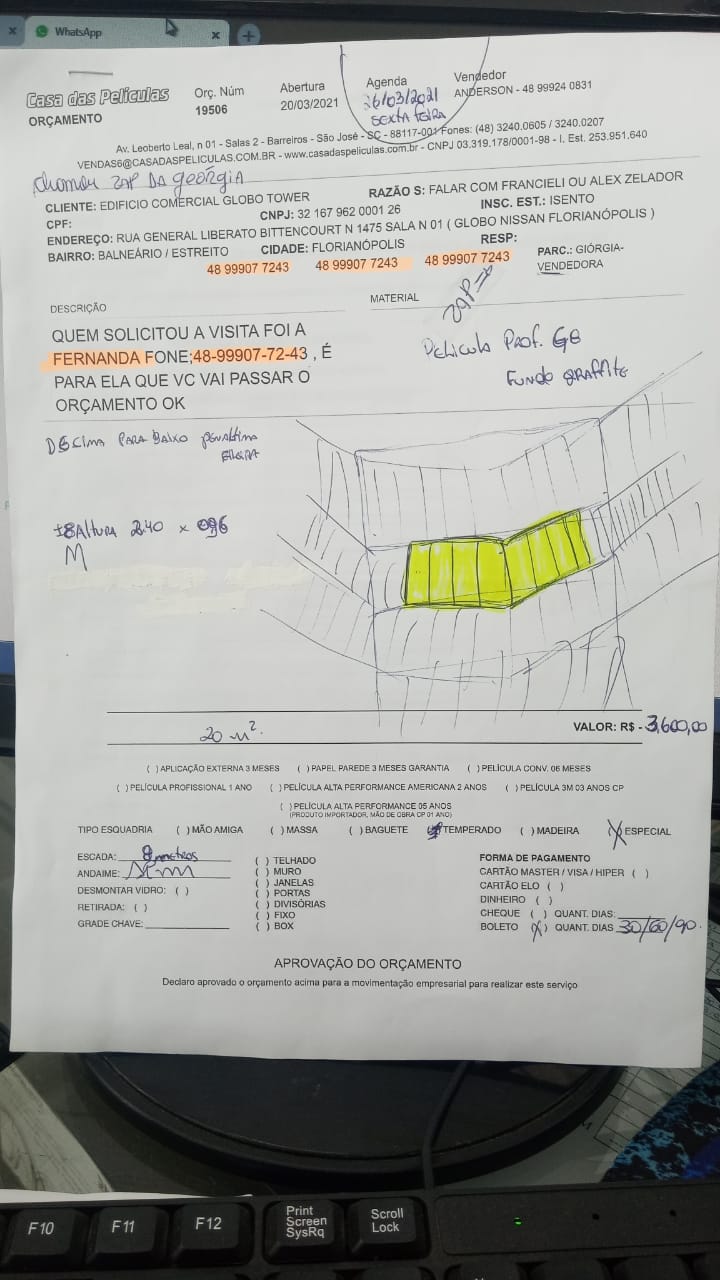 WhatsApp
Casa das Películas
ORÇAMENTO
Orç. Núm
19506
Abertura
20/03/2021
Agenda
26/03/2021
SEXTA FEIRA
Vendedor
ANDERSON - 48 99924 0831
Av. Leoberto Leal, n 01 - Salas 2 - Barreiros - São José - SC - 88117-001 Fones: (48) 3240.0605 / 3240.0207
VENDAS6@CASADASPELICULAS.COM.BR - www.casadaspeliculas.com.br - CNPJ 03.319.178/0001-98 - I. Est. 253.951.640
ZAP DA geórgia
CLIENTE: EDIFICIO COMERCIAL GLOBO TOWER
RAZÃO S: FALAR COM FRANCIELI OU ALEX ZELADOR
CPF:
CNPJ: 32 167 962 0001 26
INSC. EST.: ISENTO
ENDEREÇO: RUA GENERAL LIBERATO BITTENCOURT N 1475 SALA N 01 ( GLOBO NISSAN FLORIANÓPOLIS )
BAIRRO: BALNEÁRIO / ESTREITO
CIDADE: FLORIANÓPOLIS
RESP:
48 99907 7243 48 99907 7243 48 99907 7243
PARC.: GIÓRGIA-
VENDEDORA
DESCRIÇÃO
MATERIAL
ZAP
QUEM SOLICITOU A VISITA FOI A
FERNANDA FONE;48-99907-72-43 , É
PARA ELA QUE VC VAI PASSAR O
ORÇAMENTO OK
Pelicula Prof. G8
Fundo GRAFITE
DE CIMA PARA BAIXO penultima
FILEIRA
Altura 2.40 x 096
M
20 m².
VALOR: R$ - 3,600,00
( ) APLICAÇÃO EXTERNA 3 MESES ( ) PAPEL PAREDE 3 MESES GARANTIA ( ) PELÍCULA CONV. 06 MESES
( ) PELÍCULA PROFISSIONAL 1 ANO ( ) PELÍCULA ALTA PERFORMANCE AMERICANA 2 ANOS ( ) PELÍCULA 3M 03 ANOS CP
( ) PELÍCULA ALTA PERFORMANCE 05 ANOS
(PRODUTO IMPORTADOR, MÃO DE OBRA CP 01 ANO)
TIPO ESQUADRIA ( ) MÃO AMIGA ( ) MASSA ( ) BAGUETE TEMPERADO ( ) MADEIRA (X) ESPECIAL
ESCADA: 8 metros
ANDAIME:
DESMONTAR VIDRO: ( )
RETIRADA: ( )
GRADE CHAVE:
( ) TELHADO
( ) MURO
( ) JANELAS
( ) PORTAS
( ) DIVISÓRIAS
( ) FIXO
( ) BOX
FORMA DE PAGAMENTO
CARTÃO MASTER / VISA / HIPER ( )
CARTÃO ELO ( )
DINHEIRO ( )
CHEQUE ( ) QUANT. DIAS:
BOLETO (X) QUANT. DIAS 30/60/90.
APROVAÇÃO DO ORÇAMENTO
Declaro aprovado o orçamento acima para a movimentação empresarial para realizar este serviço
F10
F11
F12
Print
Screen
SysRq
Scroll
Lock